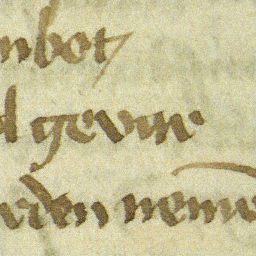 nbot
d gevar
rden neme